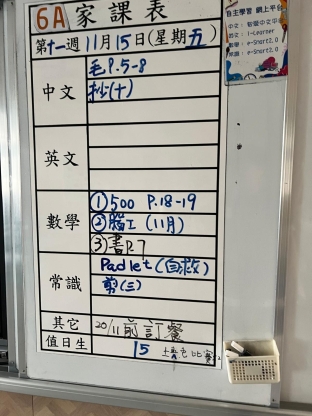 6A 家課表
第十一週 11月15日(星期五)
中文
毛P.5-8
抄(十)
英文
數學
①500 P.18-19
②腦工 (11月)
③書P.7
常識
Padlet(自救)
剪(三)
其它
20/11前訂餐
值日生
15
填色比賽
自主學習 網上平台
i-Learner
e-Smart2.0
e-Smart2.0